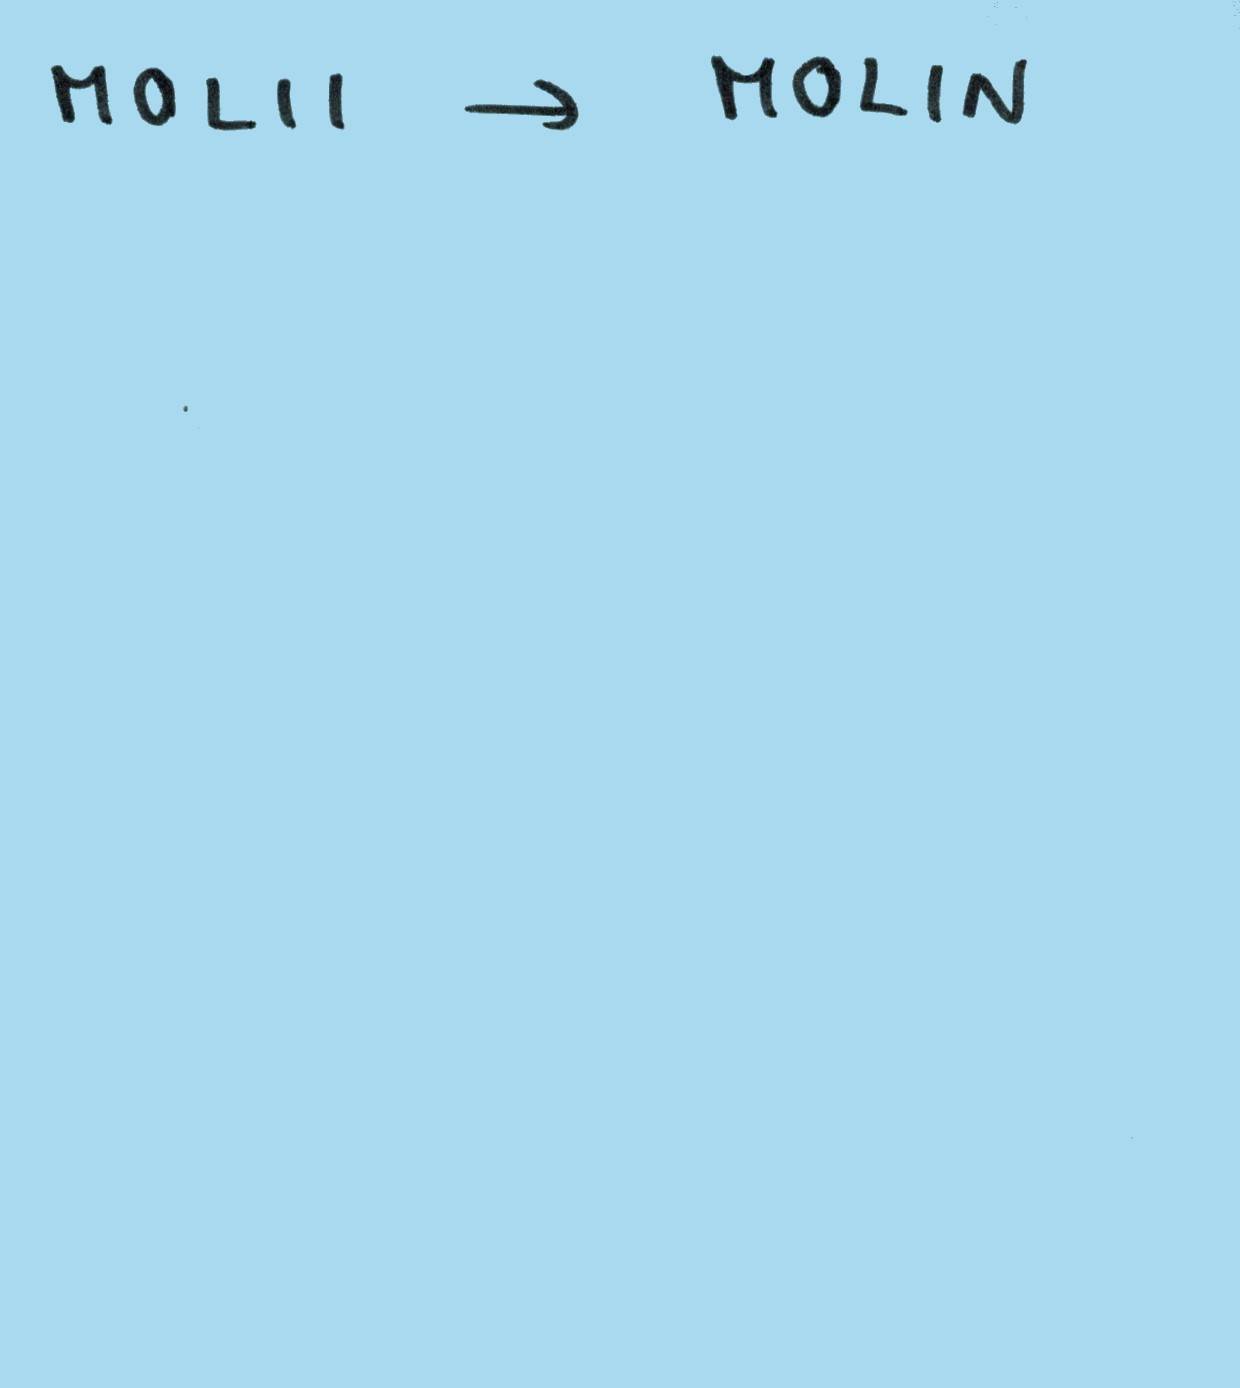 MOLII → MOLIN